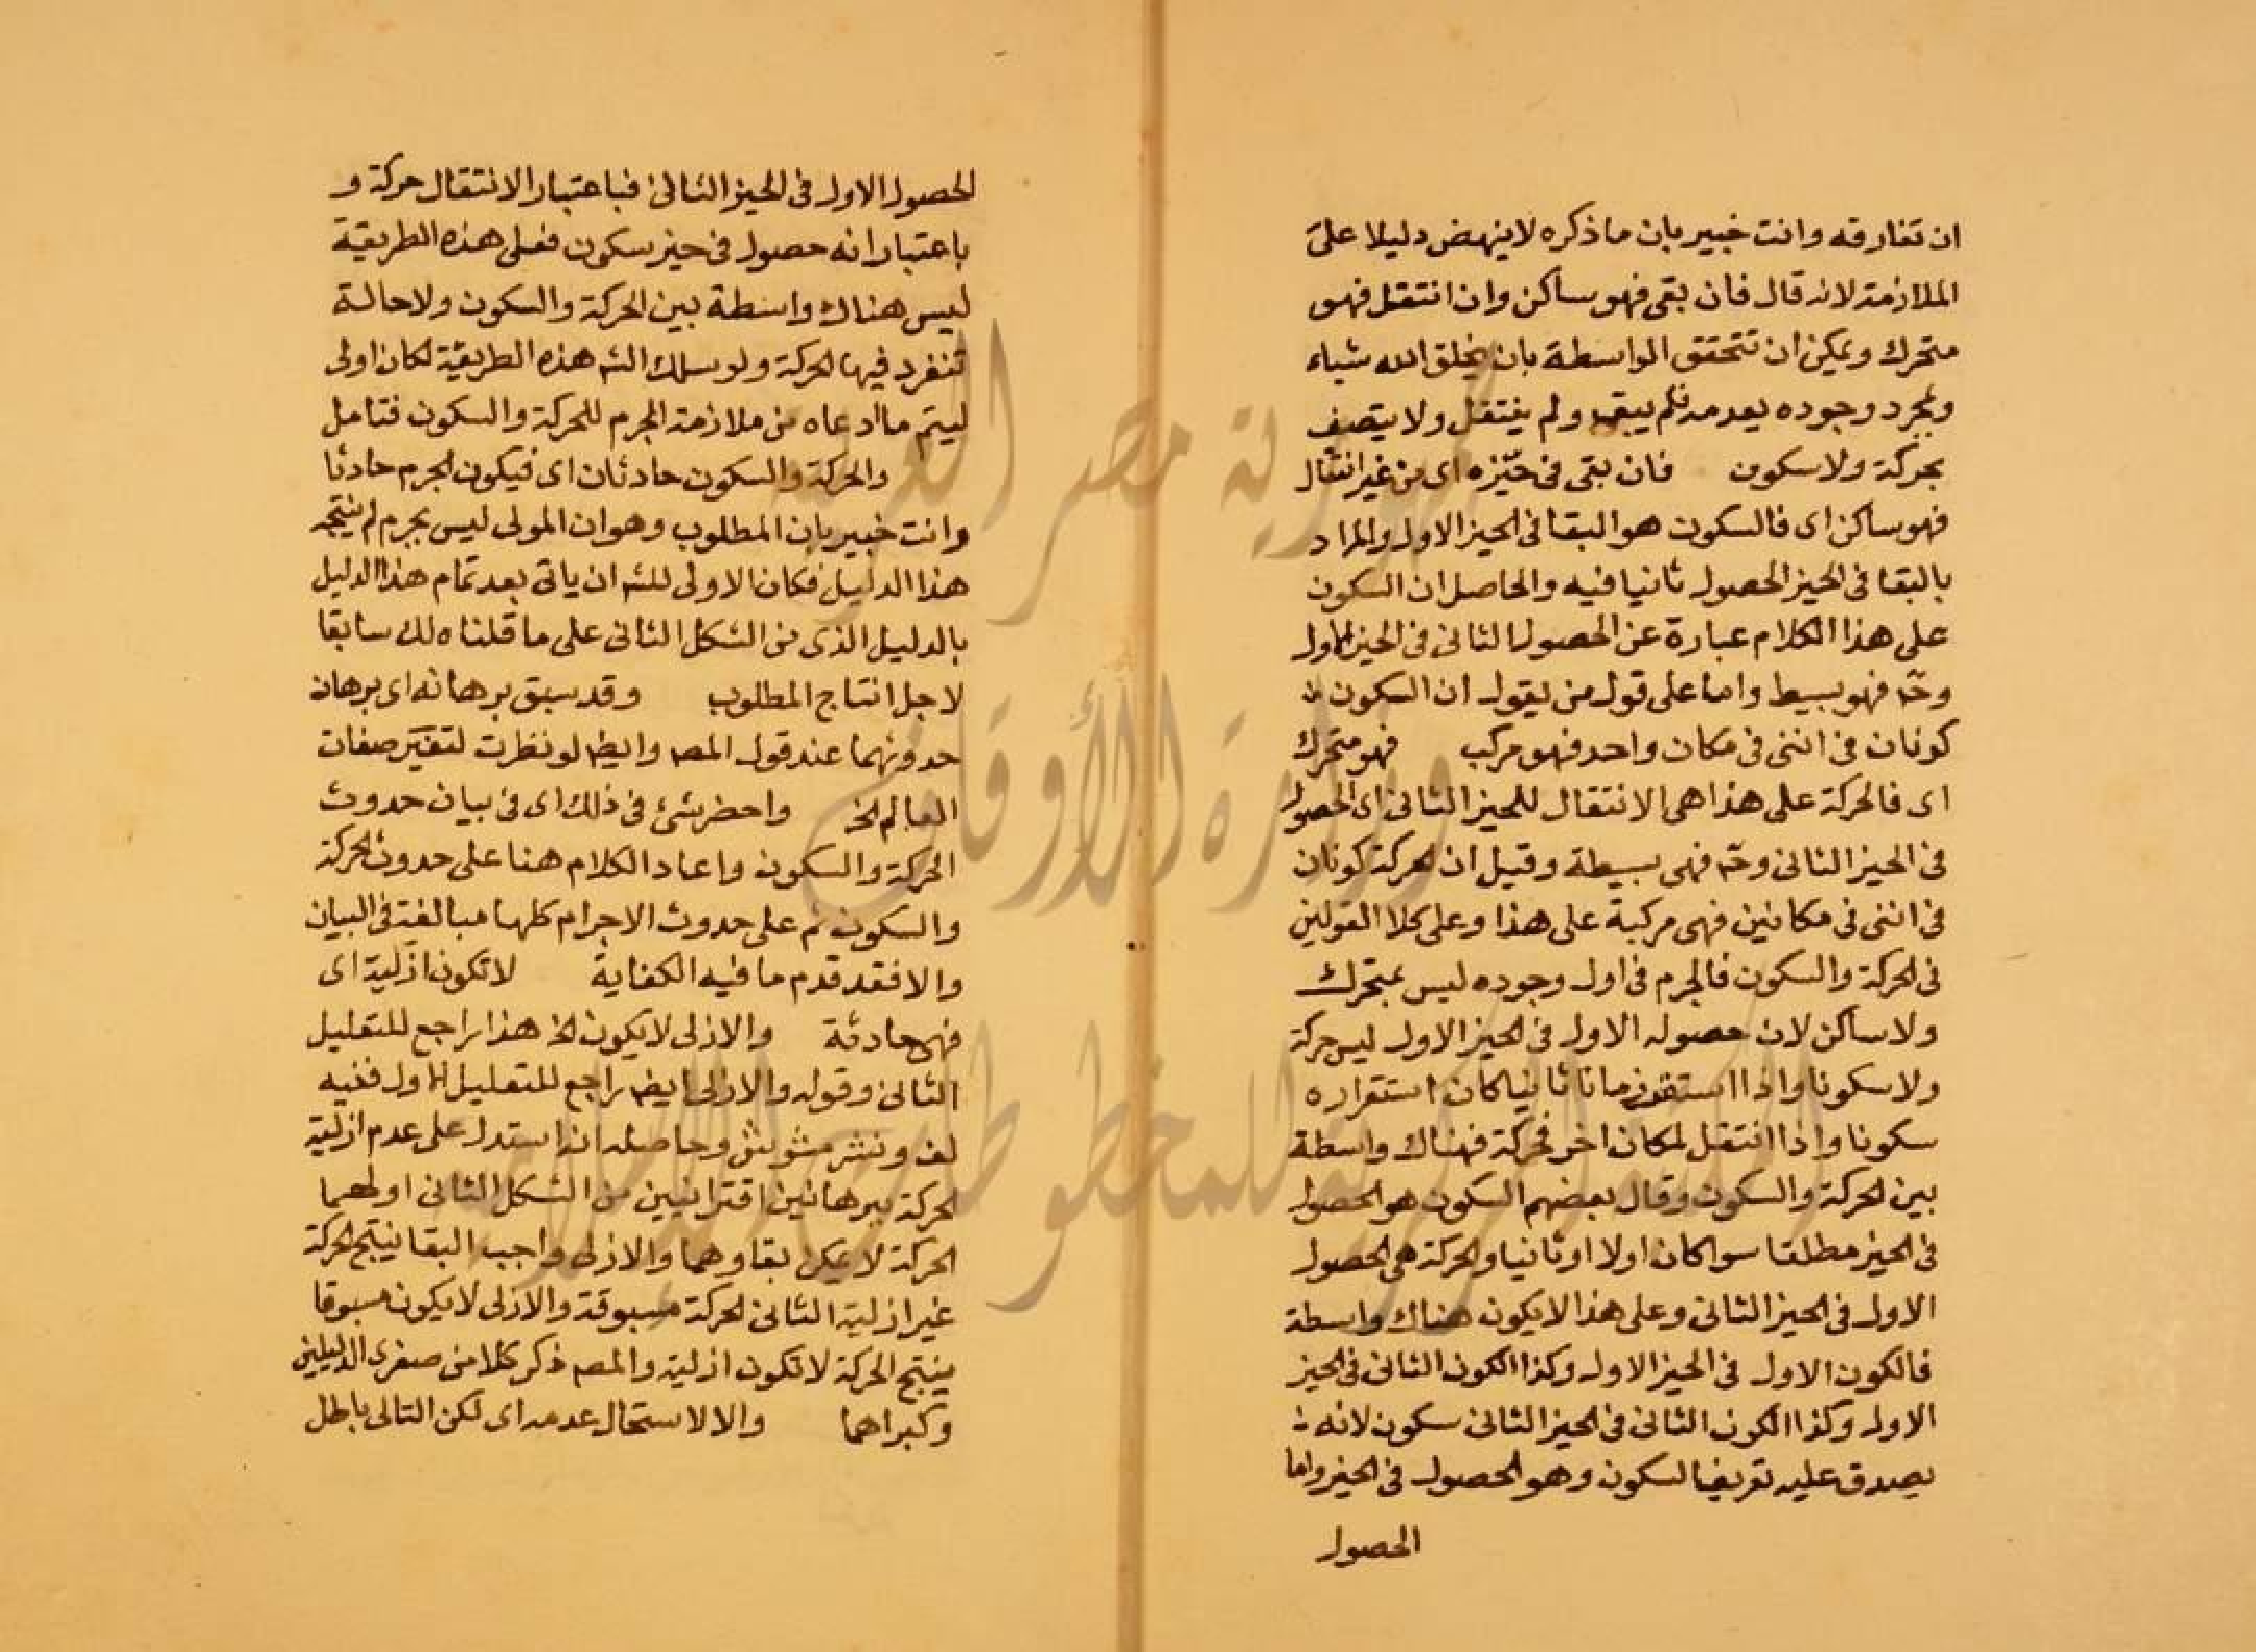 ان تفارقه وانت خبير بان ما ذكره لا ينهض دليلا على
الملازمة لانه قال فان بقى فهو ساكن وان انتقل فهو
متحرك ويمكن ان تتحقق الواسطة بان يخلق الله شياء
وبمجرد وجوده يعدمه فلم يبق ولم ينتقل ولا يتصف
بحركة ولا سكون فان بقى في حيّزه اى من غير انتقال
فهو ساكن اى فالسكون هو البقا في الحيز الاول والمراد
بالبقا في الحيز الحصول ثانيا فيه والحاصل ان السكون
على هذا الكلام عبارة عن الحصول الثانى في الحيز الاول
وحّ فهو بسيط واما على قول من يقول ان السكون
كونان في انني في مكان واحد فهو مركب فهو متحرك
اى فالحركة على هذا هى الانتقال للحيز الثانى اى الحصول
في الحيز الثانى وحّ فهى بسيطة وقيل ان الحركة كونان
في انني في مكانين فهى مركبة على هذا وعلى كلا القولين
في الحركة والسكون فالجرم في اول وجوده ليس بمتحرك
ولا ساكن لان حصوله الاول في الحيز الاول ليس حركة
ولا سكونا واذا استقر زمانا ثانيا كان استقراره
سكونا واذا انتقل لمكان اخر فحركة فهناك واسطة
بين الحركة والسكون وقال بعضهم السكون هو الحصول
في الحيز مطلقا سوا كان اولا او ثانيا والحركة هى الحصول
الاول في الحيز الثانى وعلى هذا لا يكون هناك واسطة
فالكون الاول في الحيز الاول وكذا الكون الثانى في الحيز
الاول وكذا الكون الثانى في الحيز الثانى سكون لانه
يصدق عليه تعريف السكون وهو الحصول في الحيز واما
الحصول
الحصول الاول في الحيز الثانى فباعتبار الانتقال حركة و
باعتبار انه حصول في حيز سكون فعلى هذه الطريقة
ليس هناك واسطة بين الحركة والسكون ولا حالة
تنفرد فيها الحركة ولو سلك الشه هذه الطريقة لكان اولى
ليتم ما ادعاه من ملازمة الجرم للحركة والسكون فتامل
والحركة والسكون حادثان اى فيكون الجرم حادثا
وانت خبير بان المطلوب وهو ان المولى ليس بجرم لم ينتجه
هذا الدليل فكان الاولى للشه ان ياتى بعد تمام هذا الدليل
بالدليل الذى من الشكل الثانى على ما قلناه لك سابقا
لاجل انتاج المطلوب وقد سبق برهانه اى برهان
حدوثهما عند قول المصه وايضه لو نظرت لتغيّر صفات
العالم الخ واحضر شئ في ذلك اى في بيان حدوث
الحركة والسكون واعاد الكلام هنا على حدوث الحركة
والسكون ثم على حدوث الاجرام كلها مبالغة في البيان
والا فقد قدم ما فيه الكفاية لا تكون ازلية اى
فهى حادثة والازلى لا يكون الخ هذا راجع للتعليل
الثانى وقوله والازلى ايضه راجع للتعليل الاول ففيه
لف ونشر مشوش وحاصله انه استدل على عدم ازلية
الحركة ببرهانين اقترانيين من الشكل الثانى اولهما
الحركة لا يمكن بقاوهما والازلى واجب البقا ينتج الحركة
غير ازلية الثانى الحركة مسبوقة والازلى لا يكون مسبوقا
ينتج الحركة لا تكون ازلية والمصه ذكر كلا من صغرى الدليلين
وكبراهما والا لاستحال عدمه اى لكن التالى باطل